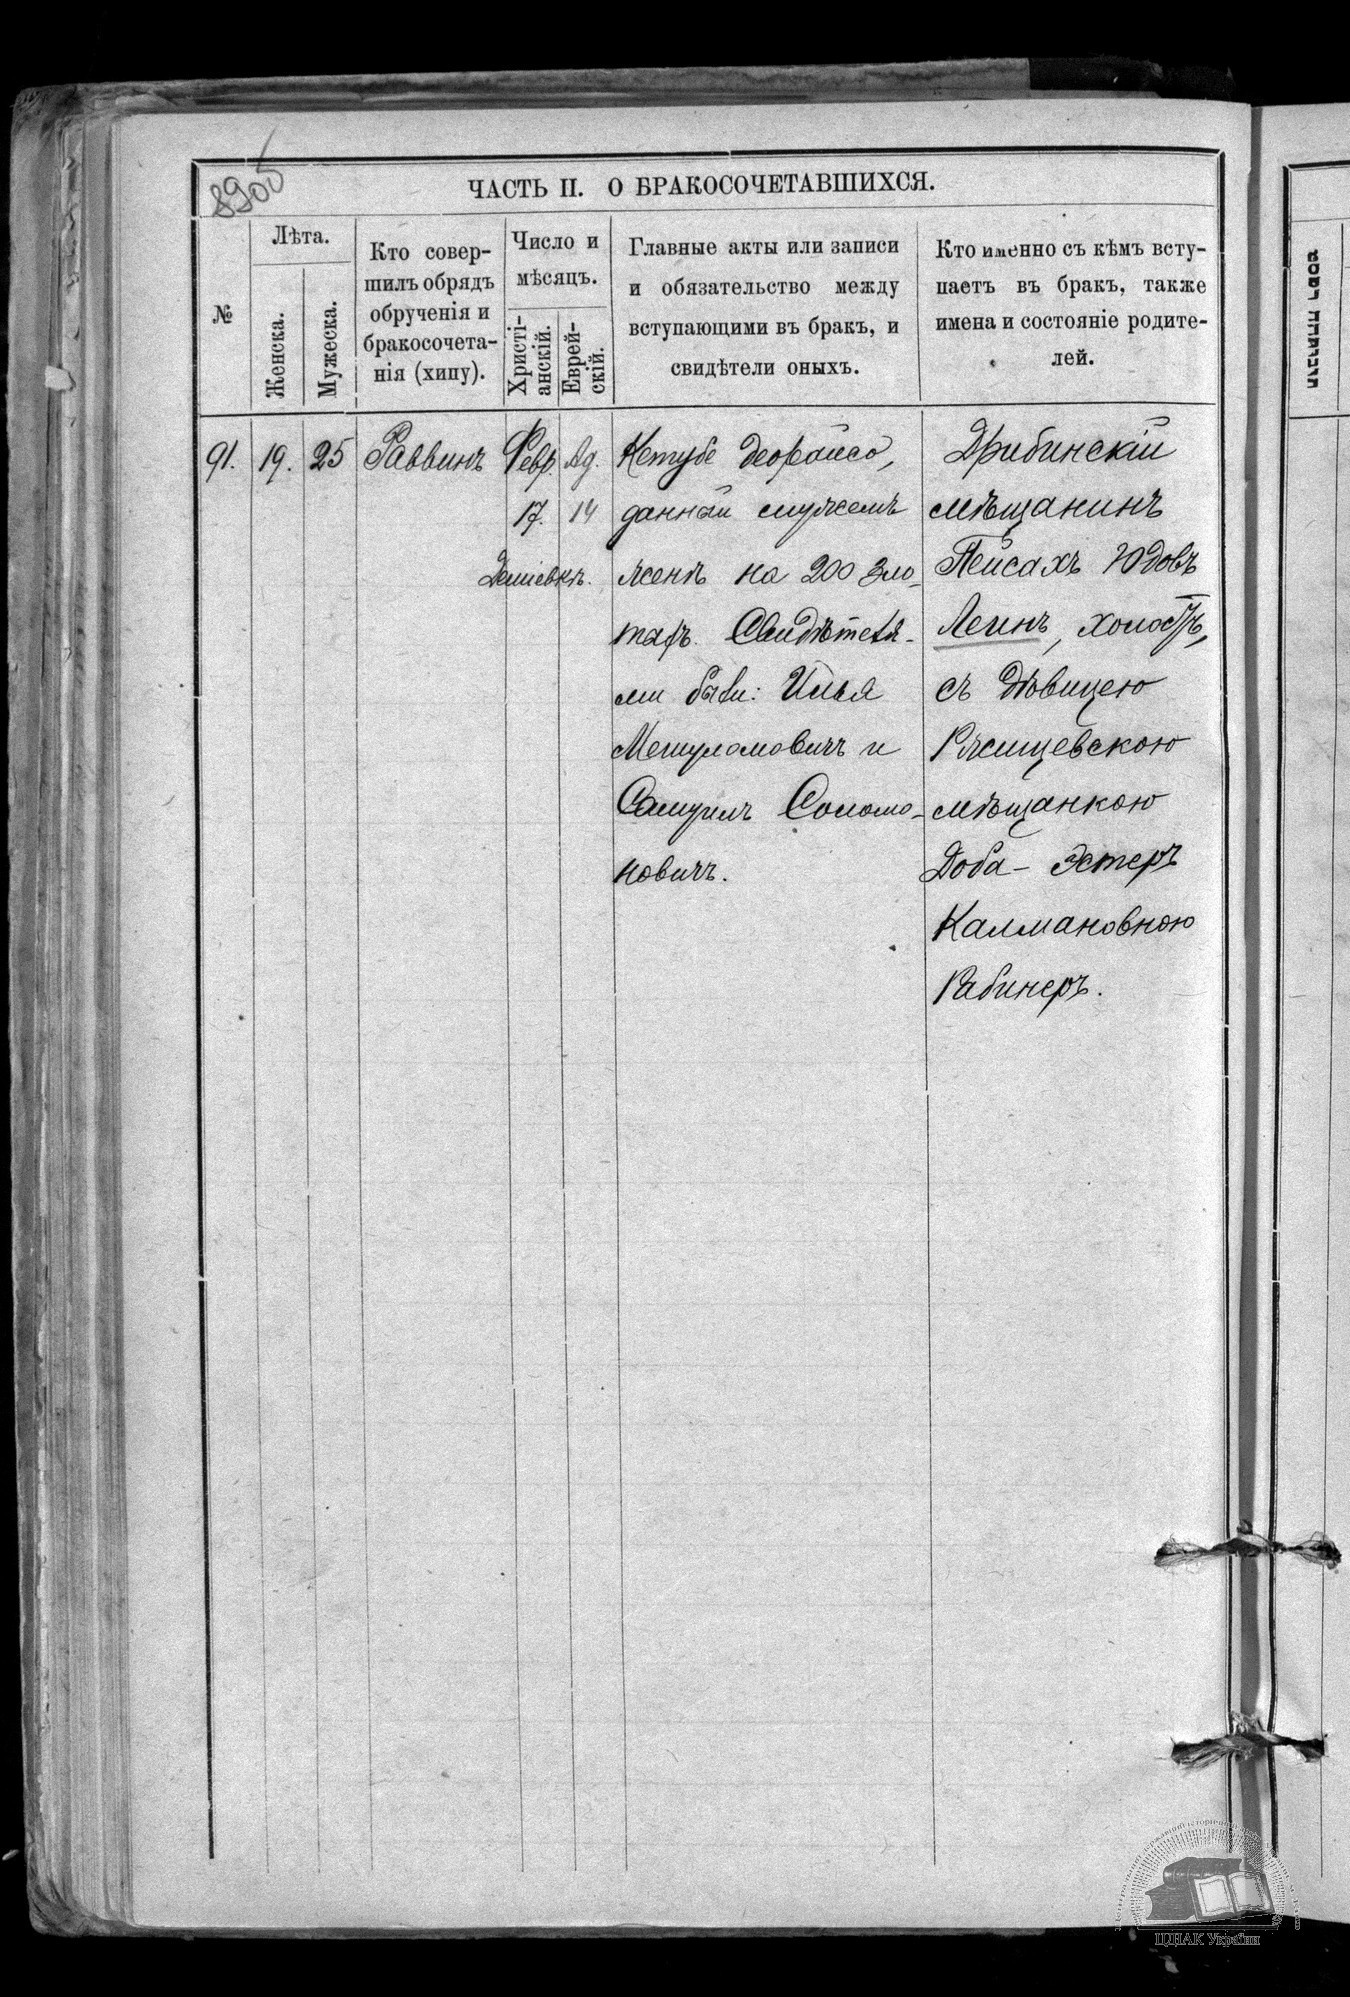 890б
ЧАСТЬ II. О БРАКОСОЧЕТАВШИХСЯ.
№
Лѣта.
Женска.
Мужеска.
Кто совер-
шилъ обрядъ
обрученія и
бракосочета-
нія (хипу).
Число и
мѣсяцъ.
Христі-
анскій.
Еврей-
скій.
Главные акты или записи
и обязательство между
вступающими въ бракъ, и
свидѣтели оныхъ.
Кто именно съ кѣмъ всту-
паетъ въ бракъ, также
имена и состояніе родите-
лей.
91.
19.
25
Раввинъ
Февр.
17.
Ад.
14
Деміевкѣ.
Кетубе деорайсо,
данный мужемъ
женѣ на 200 зло-
тахъ. Свидѣтеля-
ми были: Илья
Мешуломовичъ и
Самуилъ Соломо-
новичъ.
Дрибинскій
мѣщанинъ
Пейсахъ Юдовъ
Легинъ, холостъ,
съ дѣвицею
Ржищевскою
мѣщанкою
Доба-Эстеръ
Калмановною
Рабинеръ.
ЦДІАК України